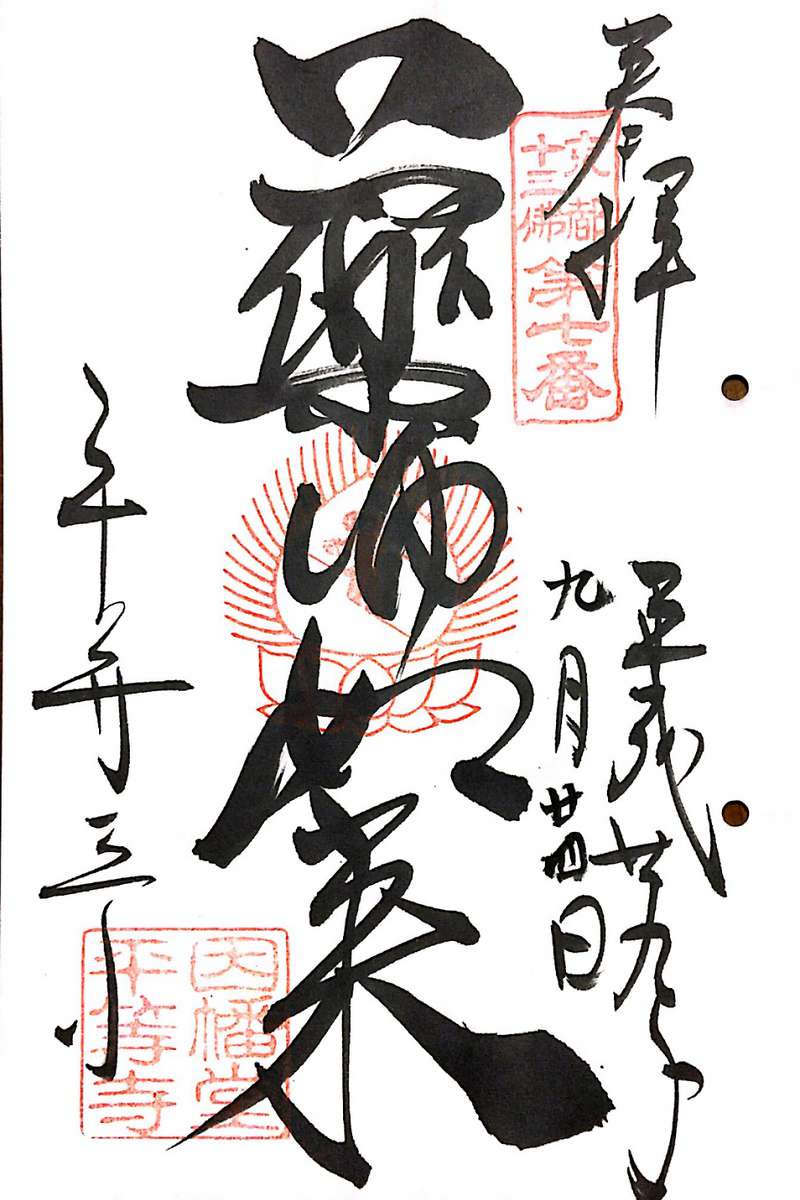 奉拝
京都
十三佛
第七番
平成廿九年
九月廿四日
藥師如来
平等寺
因幡堂
平等寺